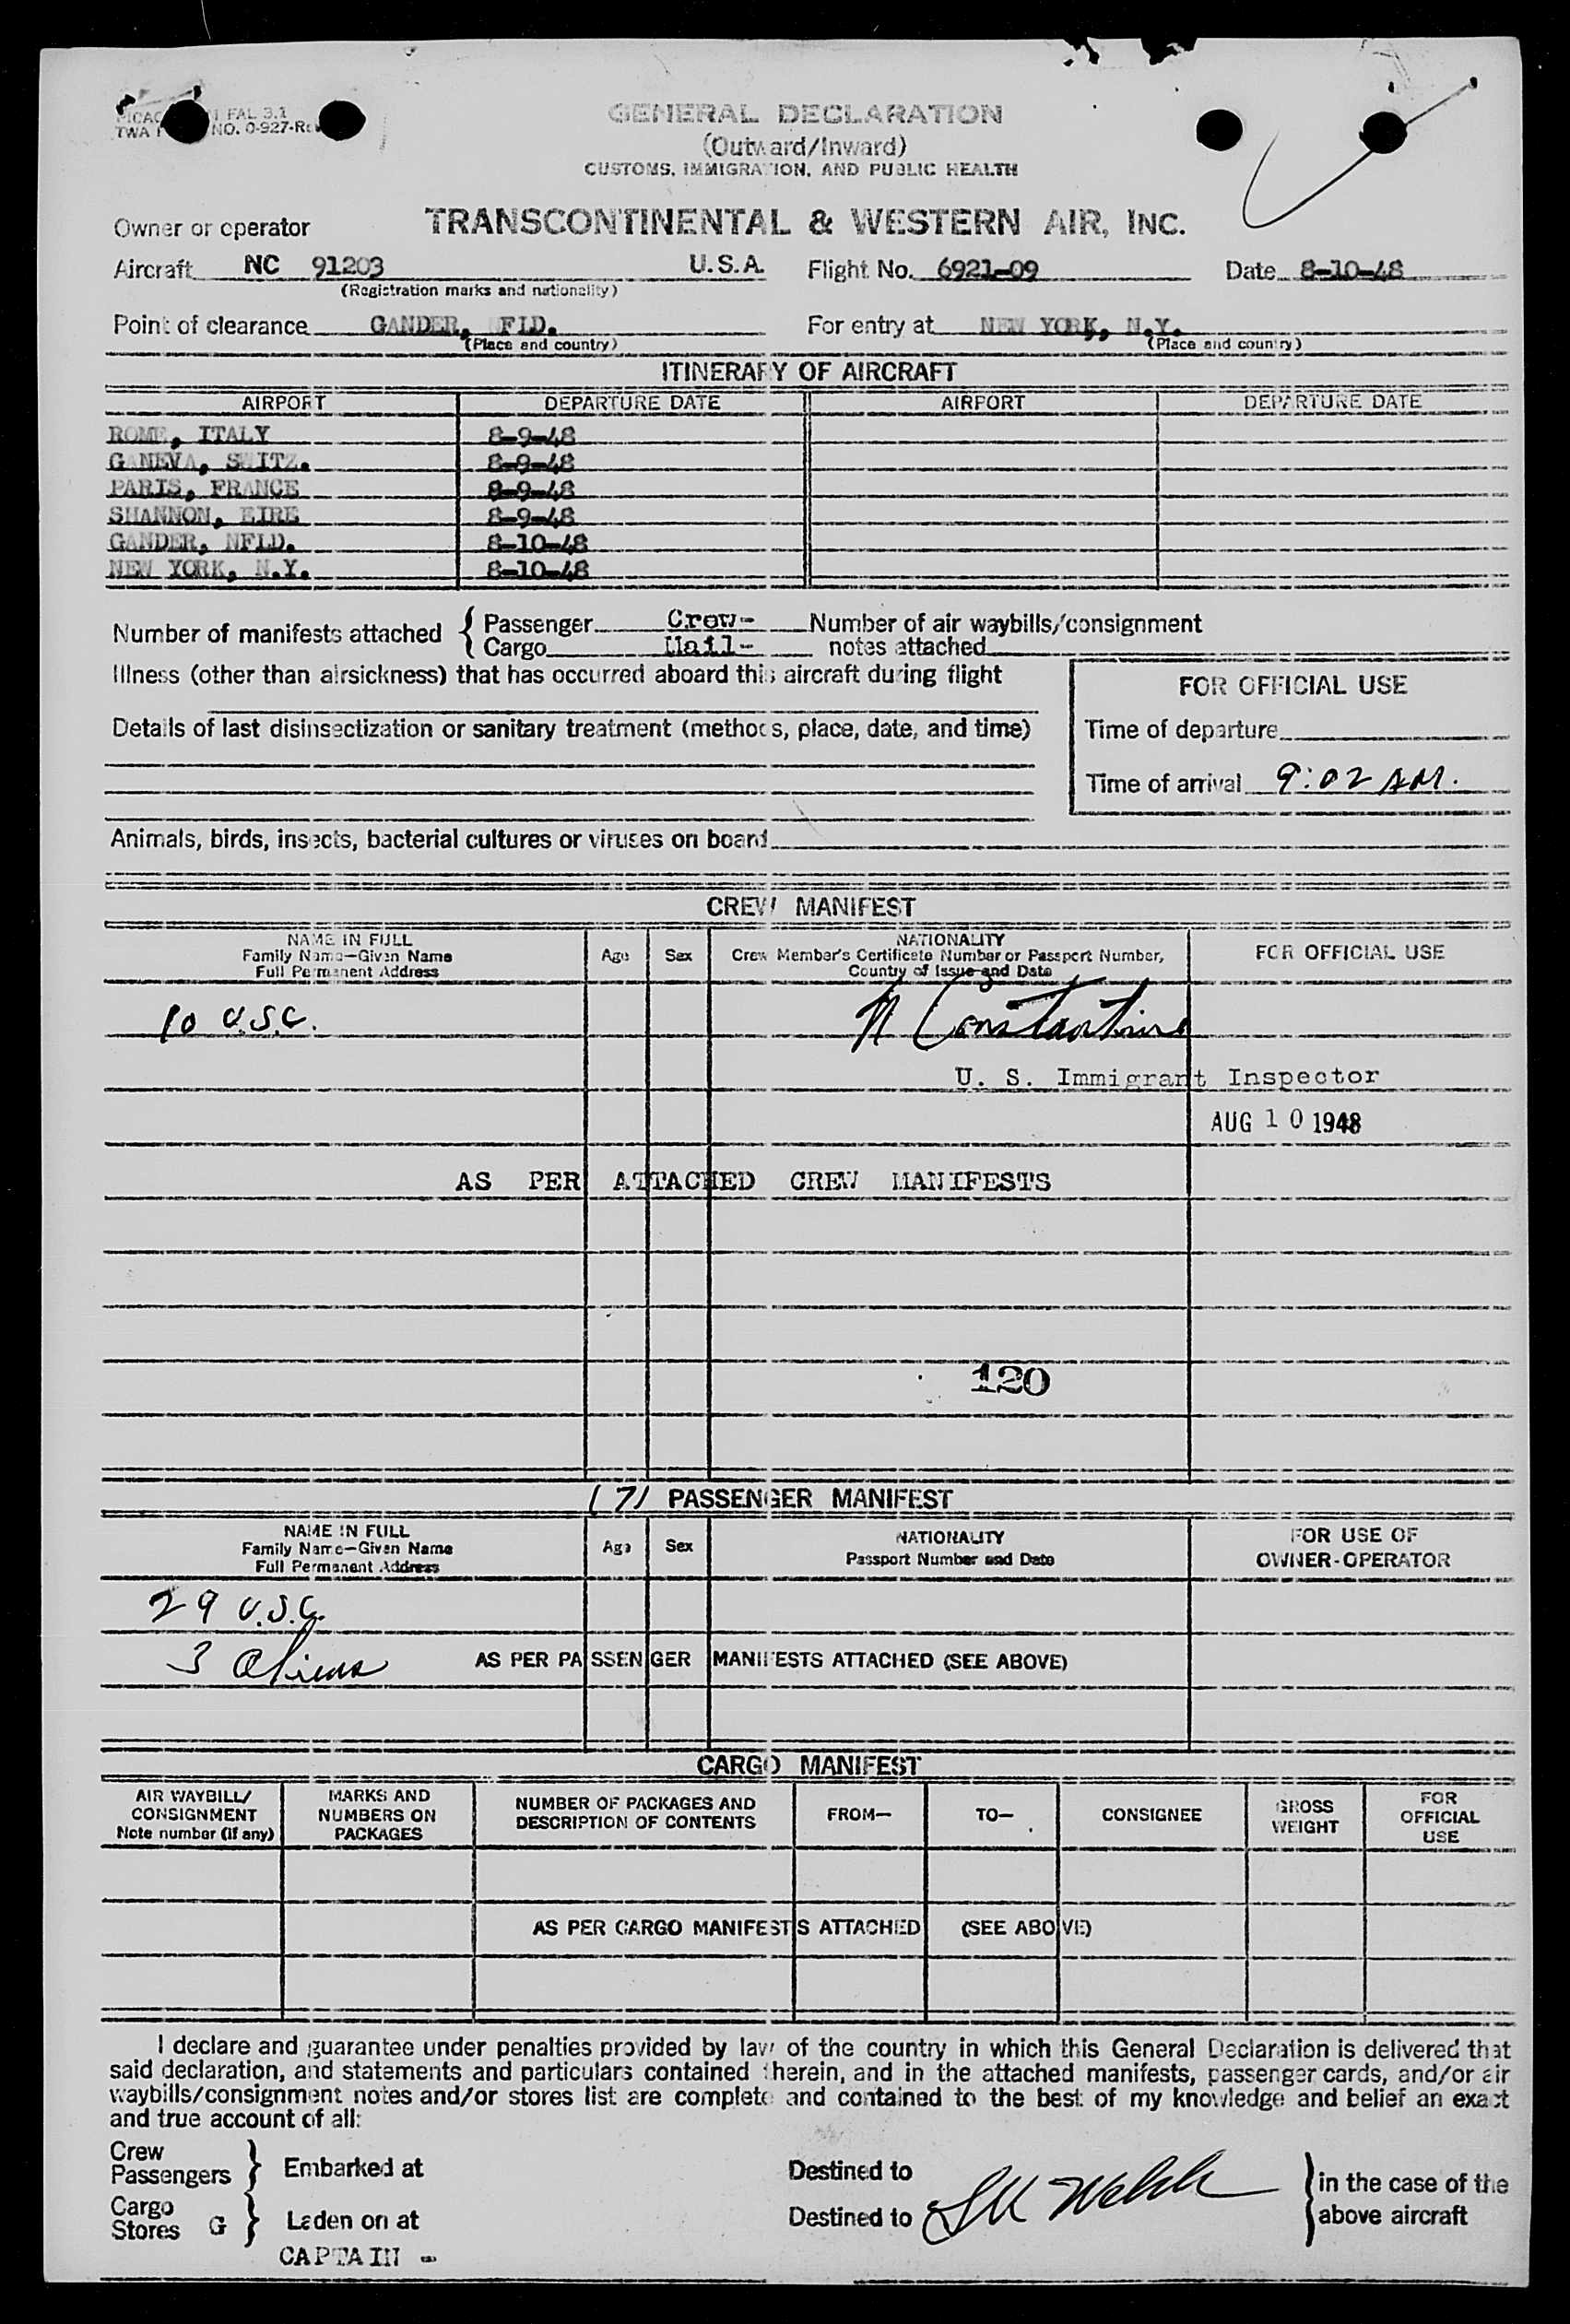 FAL 3.1
TWA NO. O-927-R
GENERAL DECLARATION
(Outward/Inward)
CUSTOMS, IMMIGRATION, AND PUBLIC HEALTH
Owner or operator TRANSCONTINENTAL & WESTERN AIR, INC.
Aircraft NC 91203 U.S.A. Flight No. 6921-09 Date 8-10-48
(Registration marks and nationality)
Point of clearance GANDER, NFLD. For entry at NEW YORK, N.Y.
(Place and country) (Place and country)
ITINERARY OF AIRCRAFT
AIRPORT DEPARTURE DATE AIRPORT DEPARTURE DATE
ROME, ITALY 8-9-48
GANEVA, SWITZ. 8-9-48
PARIS, FRANCE 8-9-48
SHANNON, EIRE 8-9-48
GANDER, NFLD. 8-10-48
NEW YORK, N.Y. 8-10-48
Number of manifests attached { Passenger Crew- Number of air waybills/consignment
Cargo Mail- notes attached
Illness (other than airsickness) that has occurred aboard this aircraft during flight
FOR OFFICIAL USE
Details of last disinsectization or sanitary treatment (methods, place, date, and time)
Time of departure
Time of arrival 9:02 AM.
Animals, birds, insects, bacterial cultures or viruses on board
CREW MANIFEST
NAME IN FULL
Family Name—Given Name
Full Permanent Address
Age Sex
NATIONALITY
Crew Member's Certificate Number or Passport Number,
Country of Issue and Date
FOR OFFICIAL USE
10 U.S.C. N Constantine
U. S. Immigrant Inspector
AUG 10 1948
AS PER ATTACHED CREW MANIFESTS
120
(7) PASSENGER MANIFEST
NAME IN FULL
Family Name—Given Name
Full Permanent Address
Age Sex
NATIONALITY
Passport Number and Date
FOR USE OF
OWNER-OPERATOR
29 U.S.C.
3 Aliens AS PER PASSENGER MANIFESTS ATTACHED (SEE ABOVE)
CARGO MANIFEST
AIR WAYBILL/
CONSIGNMENT
Note number (if any)
MARKS AND
NUMBERS ON
PACKAGES
NUMBER OF PACKAGES AND
DESCRIPTION OF CONTENTS
FROM— TO— CONSIGNEE
GROSS
WEIGHT
FOR
OFFICIAL
USE
AS PER CARGO MANIFESTS ATTACHED (SEE ABOVE)
I declare and guarantee under penalties provided by law of the country in which this General Declaration is delivered that
said declaration, and statements and particulars contained therein, and in the attached manifests, passenger cards, and/or air
waybills/consignment notes and/or stores list are complete and contained to the best of my knowledge and belief an exact
and true account of all:
Crew
Passengers } Embarked at Destined to
Cargo
Stores G } Laden on at Destined to
Welch
in the case of the
above aircraft
CAPTAIN -